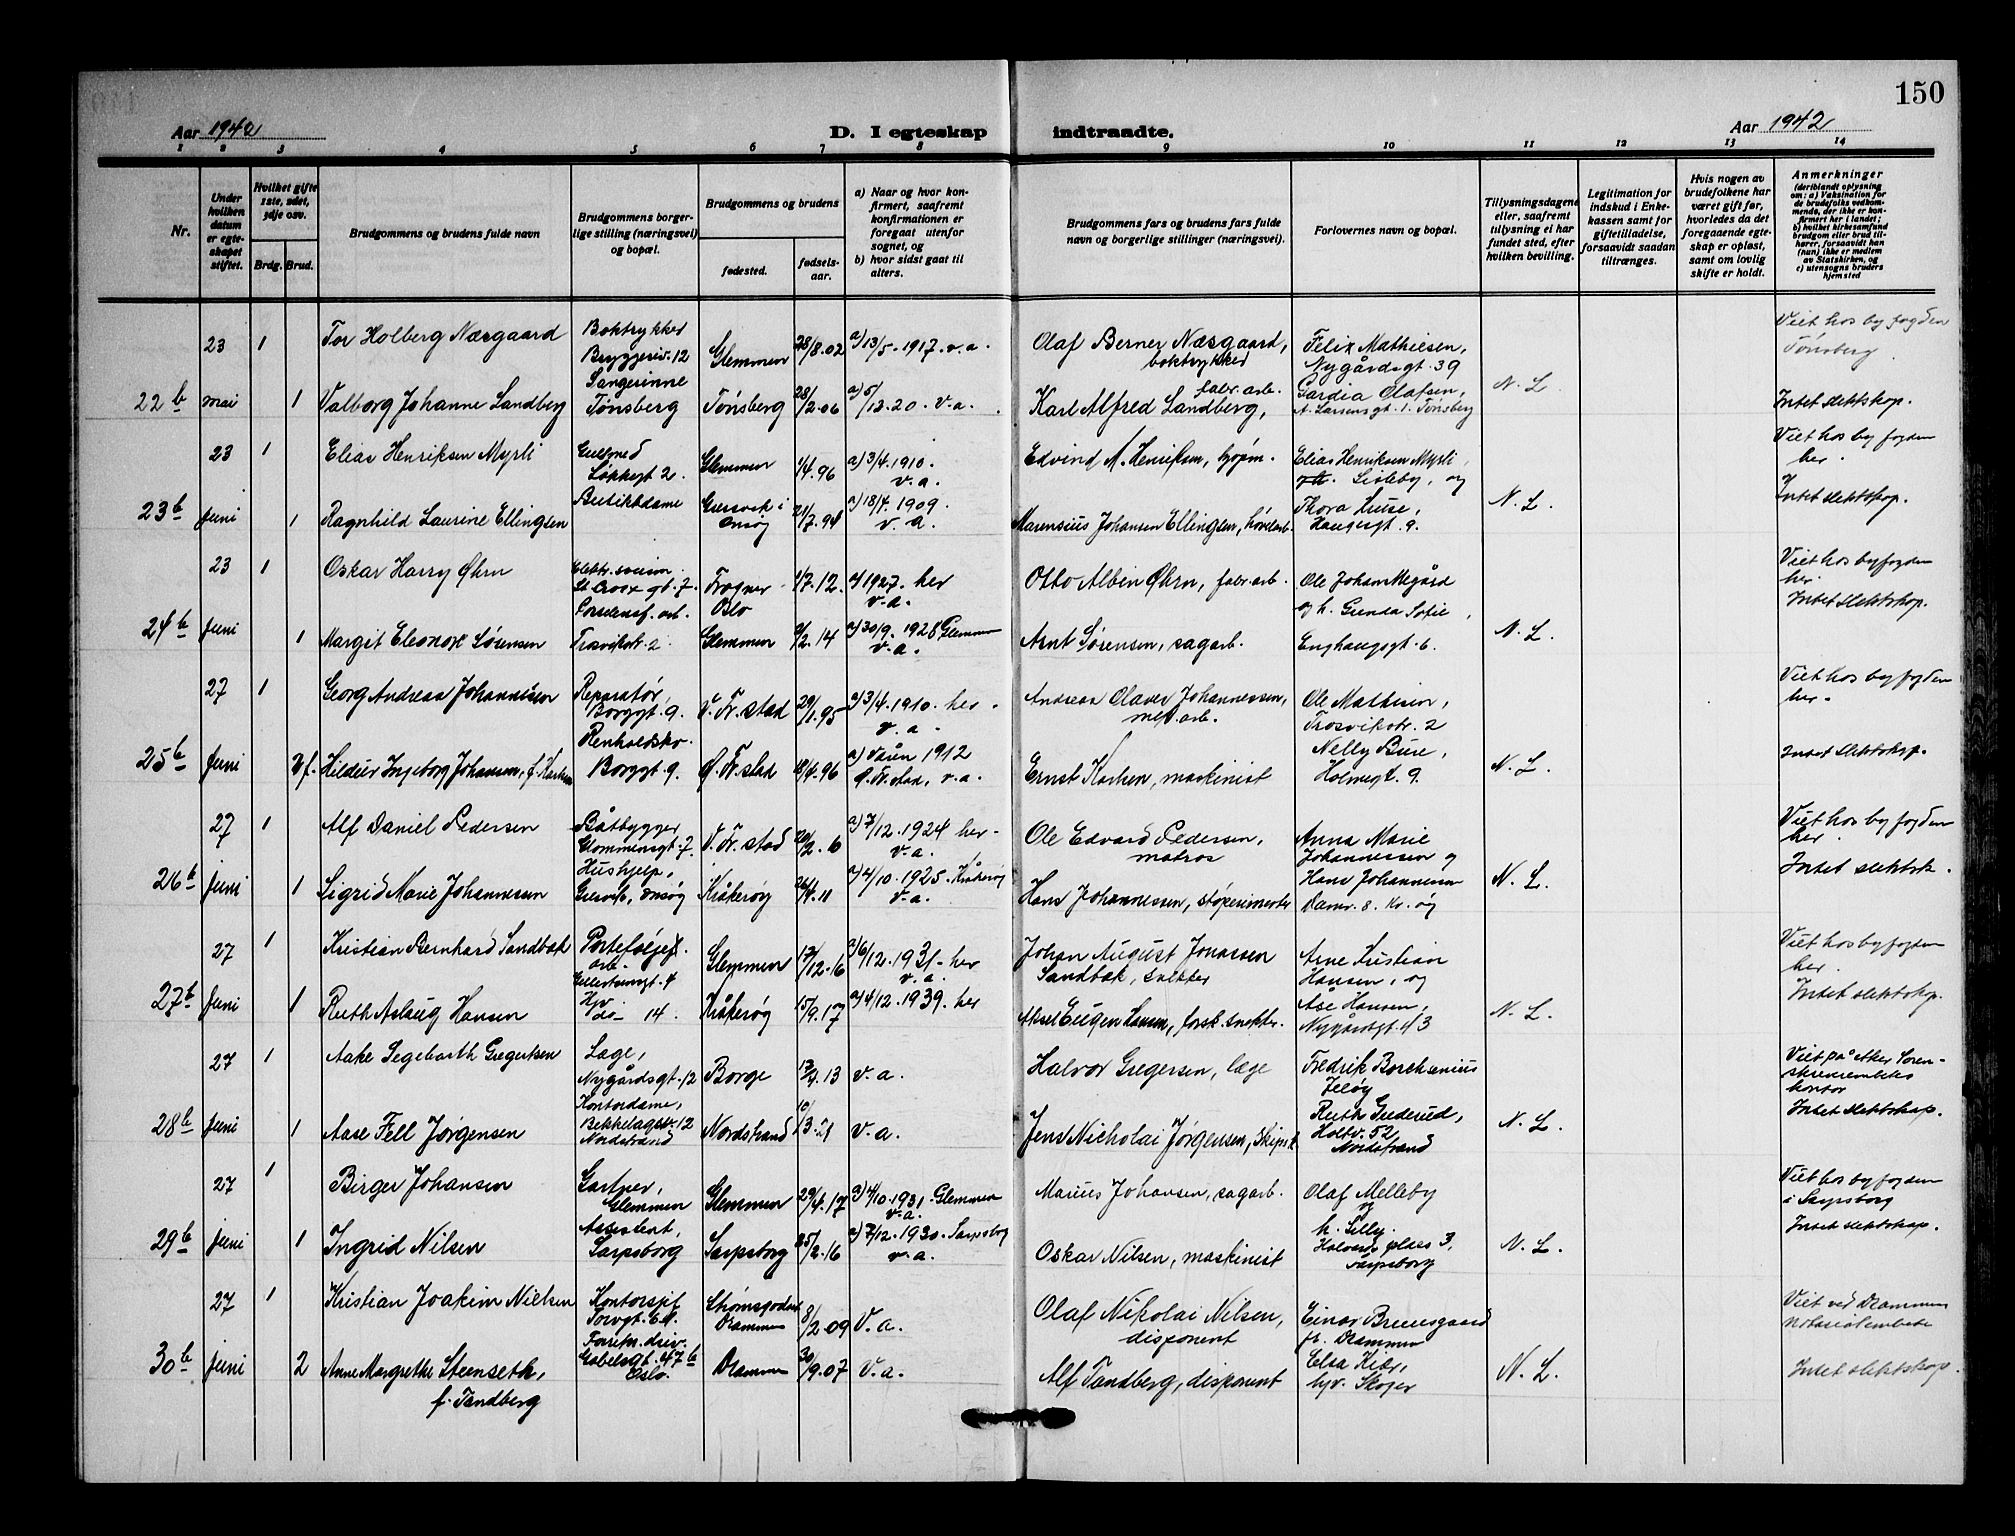 150
Aar 1942
D. I egteskap indtraadte.
Aar 1942
1 2 3 4 5 6 7 8 9 10 11 12 13 14
Nr.
Under hvilken datum er egteskapet stiftet.
Hvilket gifte 1ste, 2det, 3dje osv.
Brdg. Brud.
Brudgommens og brudens fulde navn
Brudgommens borgerlige stilling (næringsvei) og bopæl.
Brudgommens og brudens
fødested.
fødselsaar.
a) Naar og hvor konfirmert, saafremt konfirmationen er foregaat utenfor sognet, og
b) hvor sidst gaat til alters.
Brudgommens fars og brudens fars fulde navn og borgerlige stillinger (næringsvei).
Forlovernes navn og bopæl.
Tillysningsdagene eller, saafremt tillysning ei har fundet sted, efter hvilken bevilling.
Legitimation for indskud i Enkekassen samt for giftetilladelse, forsaavidt saadan tiltrænges.
Hvis nogen av brudefolkene har været gift før, hvorledes da det foregaaende egteskap er opløst, samt om lovlig skifte er holdt.
Anmerkninger
(deriblandt oplysning om: a) Vaksination for de brudefolks vedkommende, der ikke er konfirmert her i landet; b) hvilket kirkesamfund brudgom eller brud tilhører, forsaavidt han (hun) ikke er medlem av Statskirken, og c) utensogns bruders hjemsted
22b 23 mai
1 Tor Holberg Næsgaard
Boktrykker Bryggeriv. 12
Glemmen 28/8.02
a) 13/5. 1917. v.a.
Olaf Berner Næsgaard, boktrykker
Felix Mathiesen, Nygårdsgt. 39
N. L.
Viet hos byfogden Tønsberg
1 Valborg Johanne Sandberg
Sangerinne Tønsberg
Tønsberg 28/2.06
a) 5/12.20. v.a.
Karl Alfred Sandberg, fabr. arb.
Gardia Olafsen, A. Larsensgt. 1. Tønsberg
Intet slektskap.
23b 23 Juni
1 Elias Henriksen Myrli
Løkkegt 2
Glemmen 1/4.96
a) 3/4.1910. v.a.
Edvind M. Henriksen,
Elias Henriksen Myrli, Lisleby, og
N. L.
Viet hos byfogden her.
1 Ragnhild Laurine Ellingsen
Butikkdame
Gressvik i Onsøy 21/7.94
a) 18/4. 1909. v.a.
Marensius Johansen Ellingsen, høvlarb.
Thora Huse, Haugesgt. 9.
Intet slektskap.
24b 23 Juni
1 Oskar Harry Øhrn
Elektr. sveisn. St. Croix gt. 7
Frogner Oslo 1/7.12.
a) 1927. her v.a.
Otto Albin Øhrn, fabr. arb.
Ole Johan Megård og h. Gunda Sofie,
N. L.
Viet hos byfogden her.
1 Margit Eleonore Sørensen
Porselensf. arb. Trosvikstr. 2
Glemmen 9/2.14
a) 30/9. 1928 Glemmen v.a.
Arnt Sørensen, sagarb.
Enghaugsgt. 6.
Intet slektskap.
25b 27 Juni
1 Georg Andreas Johannesen
Reparatør, Borggt. 9.
V. Fr. stad 29/1.95
a) 3/4.1910. her. v.a.
Andreas Olaves Johannessen, mek. arb.
Ole Mathisen, Trosvikstr. 2
N. L.
Viet hos byfogden her.
2 f. Hildur Ingeborg Johansen, f. Karlsen
Renholdsko. Borggt. 9.
Ø. Fr. stad 18/4.96
a) Våren 1912 Ø. Fr. stad, v.a.
Ernst Karlsen, maskinist
Nelly Buse, Holmegt. 9.
Intet slektskap.
26b 27 Juni
1 Alf Daniel Pedersen
Båtbygger Glommensgt. 7.
V. Fr. stad
a) 7/12. 1924 her. v.a.
Ole Edvard Pedersen, matros
Anna Marie Johannessen og
N. L.
Viet hos byfogden her.
1 Sigrid Marie Johannesen
Hushjelp, Gressvik, Onsøy
Kråkerøy 26/4.11
a) 4/10. 1925. Kråkerøy v.a.
Hans Johannessen, støperimester
Hans Johannesen Damv. 8. Kr.øy
Intet slektsk.
27b 27 Juni
1 Kristian Bernhard Sandbæk
Porteføljef. arb.
Glemmen 17/12.16
a) 6/12. 1931. her v.a.
Johan August Jonassen Sandbæk, snekker
Arne Kristian Hansen, og
N. L.
Viet hos byfogden her.
1 Ruth Aslaug Hansen
Hjv. do 14.
Kråkerøy 15/9.17
a) 4/12. 1939. her
Aksel Eugen Hansen, forsk. snekker.
Åse Hansen, Nygårdsgt. 43
Intet slektskap.
28b 27 Juni
1 Aake Segebarth Gregertsen
Læge, Nygårdsgt. 12
Borge
v.a.
Halvor Gregersen, læge
Fredrik Borchsenius Jeløy
N. L.
Viet på Aker Sorenskriverembets kontor
1 Aase Fell Jørgensen
Kontordame, Bekkelagst. 12 Nordstrand
Nordstrand 10/3.21
v.a.
Jens Nicholai Jørgensen, Skipsk.
Ruth Grederud, Holtv. 52 Nordstrand
Intet slektskap.
29b 27 Juni
1 Birger Johansen
Gartner, Glemmen
Glemmen 29/4.17
a) 4/10. 1931. Glemmen v.a.
Marius Johansen, sagarb.
Olaf Melleby og
N. L.
Viet hos byfogden i Sarpsborg
1 Ingrid Nilsen
Assistent, Sarpsborg
Sarpsborg 25/2.16
a) 7/12. 1930. Sarpsborg v.a.
Oskar Nilsen, maskinist
h. Silly Halvards plass 3, Sarpsborg
Intet slektskap.
30b 27 Juni
1 Kristian Joakim Nielsen
Kontorsjef Torvgt. 61.
Strømsgodset Drammen 8/2.09
v.a.
Olaf Nikolai Nilsen, disponent
Einar Bruusgaard fr. Drammen
N. L.
Viet ved Drammen notarialembete
2 Anne Margrethe Steenseth, f. Tandberg
Forretn. driv. Gabelsgt. 47b Oslo.
Drammen 30/9.07
v.a.
Alf Tandberg, disponent
Elsa Kiær, hjv. Skoger
Intet slektskap.